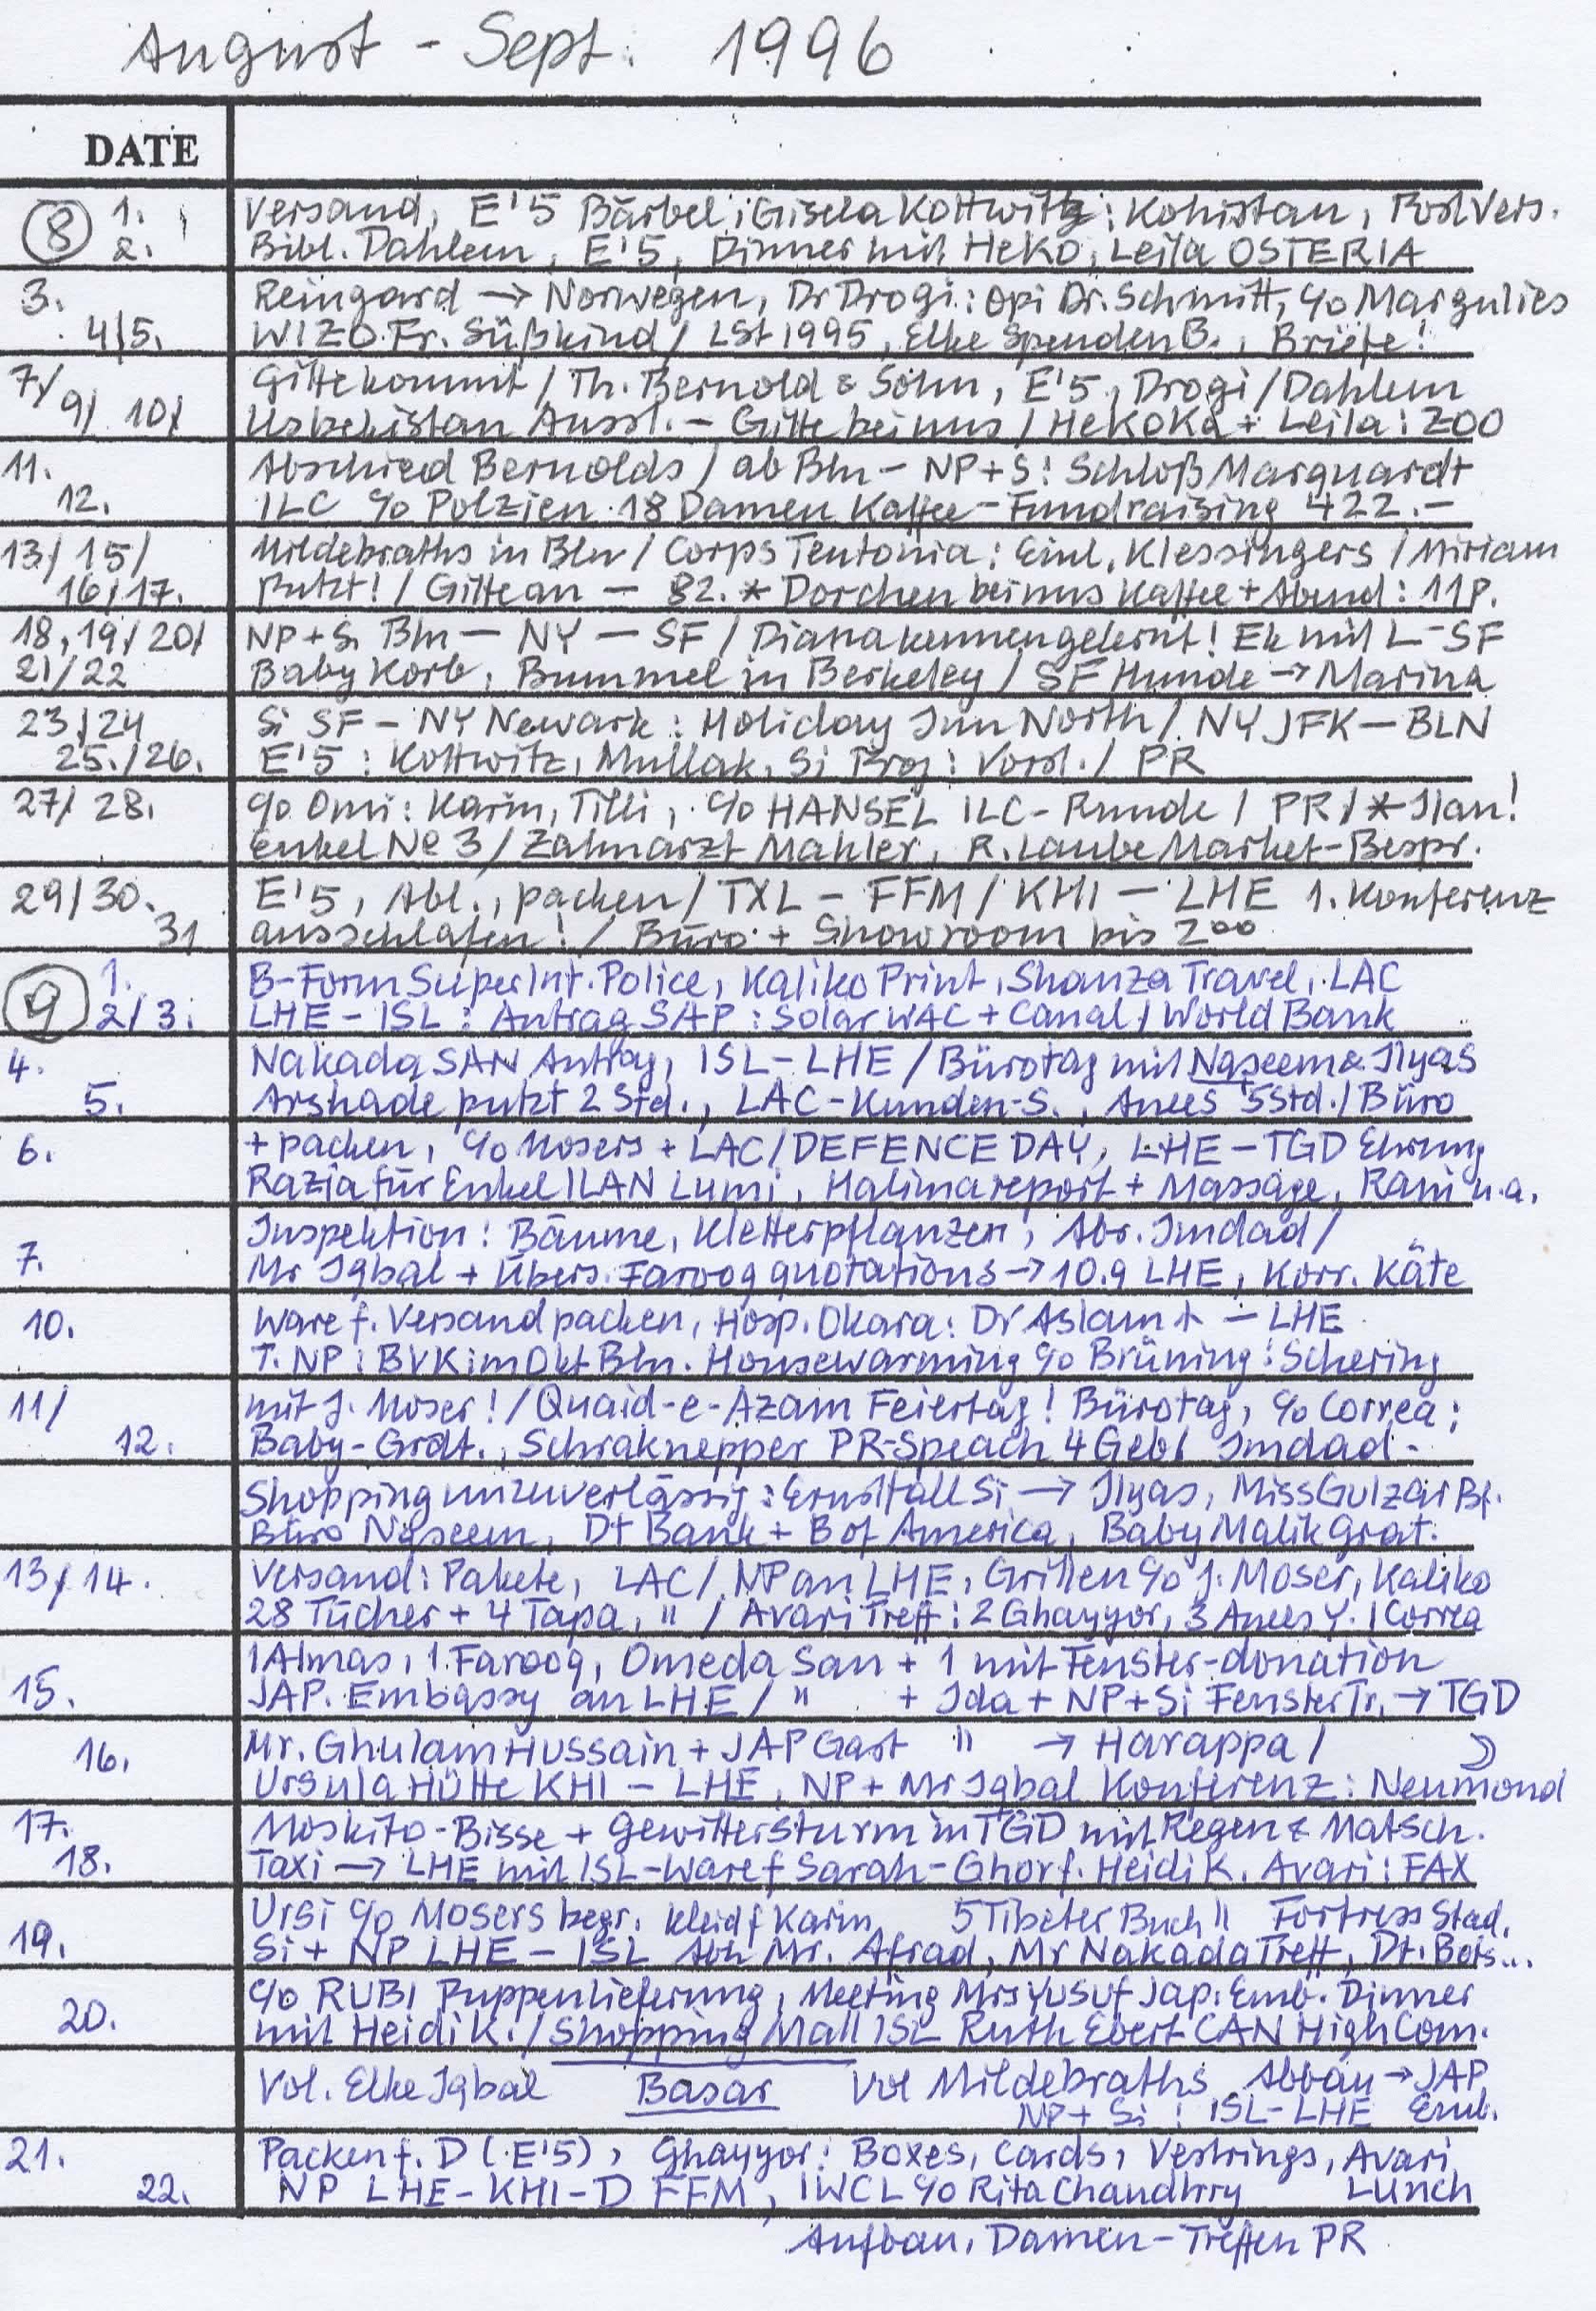 August - Sept. 1996
DATE
8 1. Versand, E'5 Bärbel; Gisela Kottwitz: Kohistan, PostVers.
2. Bibl. Dahlem, E'5, Dinner mit HeKo, Leila OSTERIA
3. Reingard → Norwegen, Dr Drogi: Opi Dr. Schmitt, c/o Margulies
4/5. WIZO Fr. Süßkind / LSt 1995, Elke Spenden B., Briefe!
7/ Gitte kommt / Th. Bernold & Sohn, E'5, Drogi / Dahlem
9/ 10/ Usbekistan Ausst. - Gitte bei uns / HeKoKa + Leila: ZOO
11. Abschied Bernolds / ab Bln - NP+S: Schloß Marquardt
12. ILC c/o Polzien 18 Damen Kaffee - Fundraising 422.-
13/ 15/ Mildebraths in Bln / Corps Teutonia: Einl. Klessingers / Miriam
16/17. putzt! / Gitte an - 82. * Dorchen bei uns Kaffee + Abend: 11P.
18, 19/ 20/ NP+S. Bln - NY - SF / Diana kennengelernt! Ek mit L-SF
21/22 Baby Korb, Bummel in Berkeley / SF Hunde → Marina
23/24 Si SF - NY Newark: Holiday Inn North / NY JFK - BLN
25./26. E'5: Kottwitz, Mullak, Si Proj: Vorst. / PR
27/ 28. c/o Omi: Karin, Tilli, c/o HANSEL ILC-Runde / PR / * Ilan!
Enkel No 3 / Zahnarzt Mahler, R. Laube Market-Bespr.
29/30. E'5, Abl., packen / TXL - FFM / KHI - LHE 1. Konferenz
31 ausschlafen! / Büro + Showroom bis 2⁰⁰
9 1. B-Form SuperInt. Police, Kaliko Print, Shanza Travel, LAC
2/3. LHE - ISL: Antrag SAP: Solar WAC + Canal / World Bank
4. Nakada SAN Antrag, ISL-LHE / Bürotag mit Naseem & Ilyas
5. Arshade putzt 2 Std., LAC-Kunden-S., Anees 5 Std. / Büro
6. + packen, c/o Mosers + LAC / DEFENCE DAY, LHE - TGD Ehrung
Razia für Enkel ILAN Lumi, Halima report + Massage, Rani u.a.
Inspektion: Bäume, Kletterpflanzen, Abr. Imdad /
7. Mr Iqbal + Übers. Farooq quotations → 10.9 LHE, Korr. Käte
10. Ware f. Versand packen, Hosp. Okara: Dr Aslam + - LHE
T. NP: BVK im Okt Bln. Housewarming c/o Brüning: Schering
11/ mit J. Moser! / Quaid-e-Azam Feiertag! Bürotag, c/o Correa:
12. Baby-Grat., Schraknepper PR-Speach 4 Geb! Imdad -
Shopping unzuverlässig: Ernstfall Si → Ilyas, Miss Gulzar Bf.
Büro Naseem, Dt Bank + B of America, Baby Malik Grat.
13/ 14. Versand: Pakete, LAC /, NP an LHE, Grillen c/o J. Moser, Kaliko
28 Tücher + 4 Tapa, " / Avari Treff: 2 Ghayyor, 3 Anees Y. 1 Correa
1 Almas, 1 Farooq, Omeda San + 1 mit Fenster-donation
15. JAP. Embassy an LHE / " + Ida + NP + Si Fenster Tr. → TGD
16. Mr. Ghulam Hussain + JAP Gast " → Harappa /
Ursula Hütte KHI - LHE, NP + Mr Iqbal Konferenz: Neumond
17. Moskito-Bisse + Gewittersturm in TGD mit Regen & Matsch.
18. Taxi → LHE mit ISL-Ware f Sarah-Ghorf. Heidi K. Avari: FAX
Ursi c/o Mosers begr. Kleid f Karin, 5 Tibeter Buch " Fortress Stad.
19. Si + NP LHE - ISL Abh Mr. Afrad, Mr Nakada Treff, Dt. Bots...
c/o RUBI Puppenlieferung, Meeting Mrs Yusuf Jap. Emb. Dinner
20. mit Heidi K. / Shopping Mall ISL Ruth Ebert CAN High Com.
Vol. Elke Iqbal Basar Vol Mildebraths Abbau → JAP
NP + Si: ISL-LHE Emb.
21. Packen f. D (E'5), Ghayyor: Boxes, Cards, Vestrings, Avari
22. NP LHE - KHI - D FFM, IWCL c/o Rita Chaudhry Lunch
Aufbau, Damen-Treffen PR